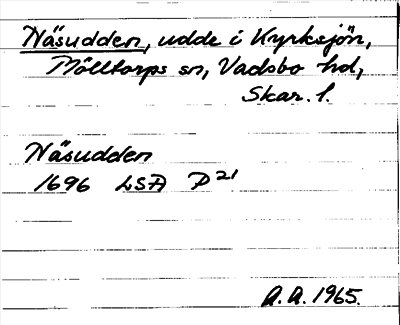 Näsudden, udde i Kyrksjön,
Mölltorps sn, Vadsbo hd,
Skar. l.
Näsudden
1696 LSA P²¹
A. A. 1965.